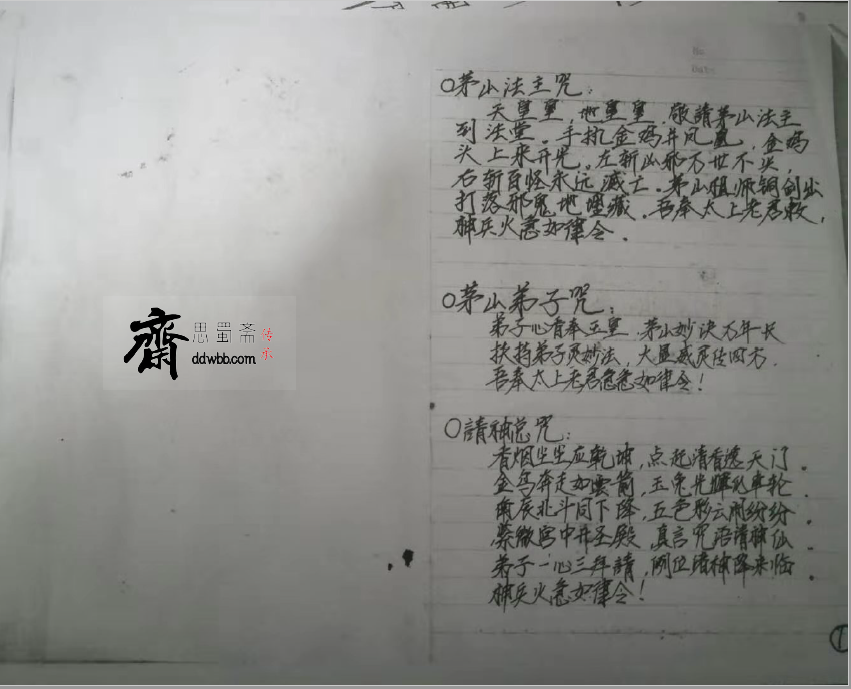 齋
思蜀斋
传承
ddwbb.com
No
Date
○茅山法主咒：
天皇皇，地皇皇，敬請茅山法主
到法堂。手执金鸡并凤凰，金鸡
头上来开光。左斩山邪万世不
右斩百怪永远滅亡。茅山祖师铜剑出
打落邪鬼地埋藏。吾奉太上老君敕，
神兵火急如律令。
○茅山弟子咒：
弟子心香奉玉皇，茅山妙决万年长
扶持弟子灵妙法，大显威灵在四方.
吾奉太上老君急急如律令！
○請神总咒：
香烟尘尘应乾坤，点起清香透天门.
金乌奔走如雲箭，玉兔光輝似車轮.
南辰北斗同下降，五色彩云闹纷纷.
紫微宫中开圣殿，真言咒语请神仙.
弟子一心三拜請，诸神降来临.
神兵火急如律令！
1